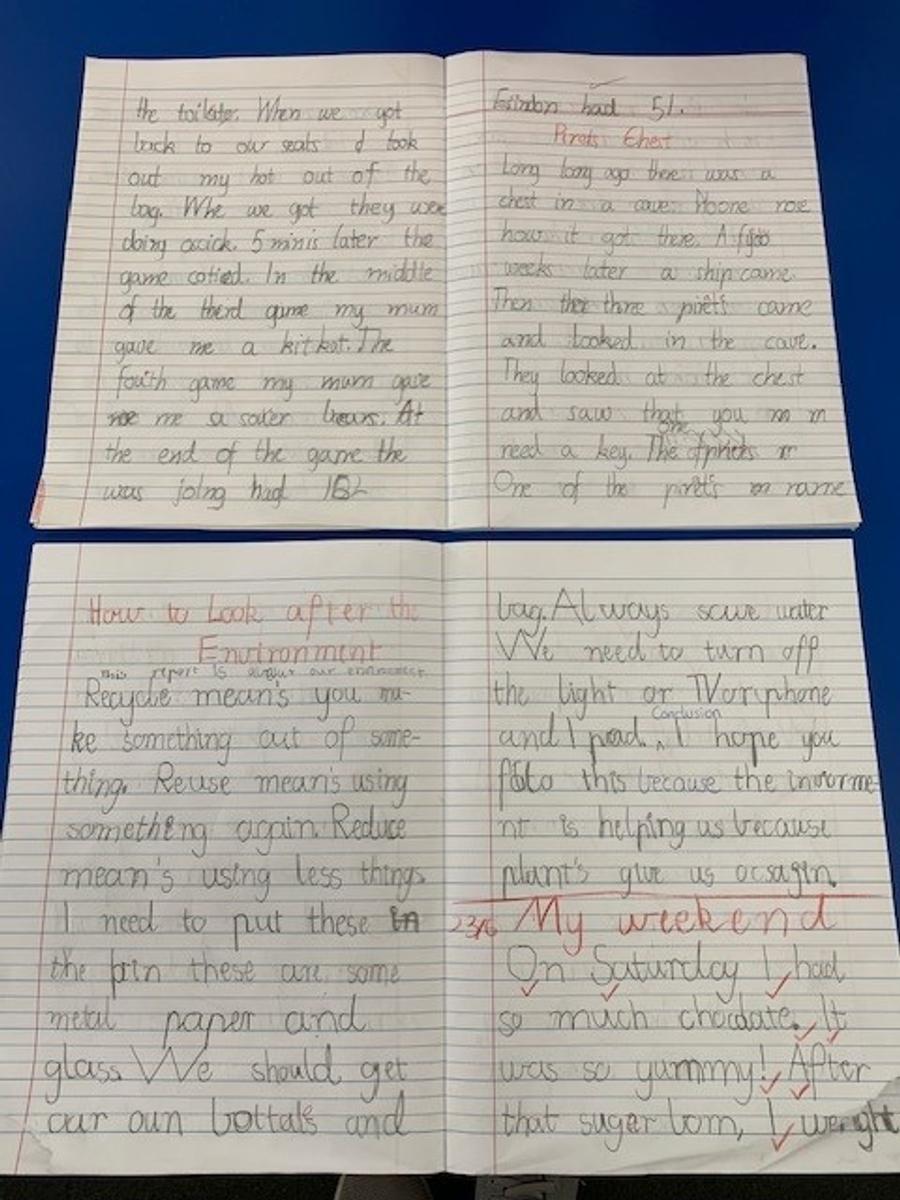 the toilater. When we got
back to our seats I took
out my hot out of the
bag. Whe we got they were
doing 5 minis later the
game In the middle
of the therd game my mum
gave me a kitkat. The
fouth game my mum gave
me a bears. At
the end of the game the
was joing had
had 51.
Pirets Chest
Long long ago there was a
chest in a cave. Noone nose
how it got there. A
weeks later a ship came.
Then three pirets came
and looked in the cave.
They looked at the chest
and saw that you
need a key. The one
One of the pirets name
How to Look after the
Environment
this report is about our
Recycle mean's you ma-
ke something out of some-
thing. Reuse mean's using
something again. Reduce
mean's using less things.
I need to put these in
the bin these are some
metal paper and
glass. We should get
our oun bottals and
bag. Always save water
We need to turn off
the light or TV or phone
Conclusion
and I pead. I hope you
this because the invorme-
nt is helping us because
plant's give us ocsagin.
23/6 My weekend
On Saturday I had
so much choclate. It
was so yummy! After
that suger bom, I